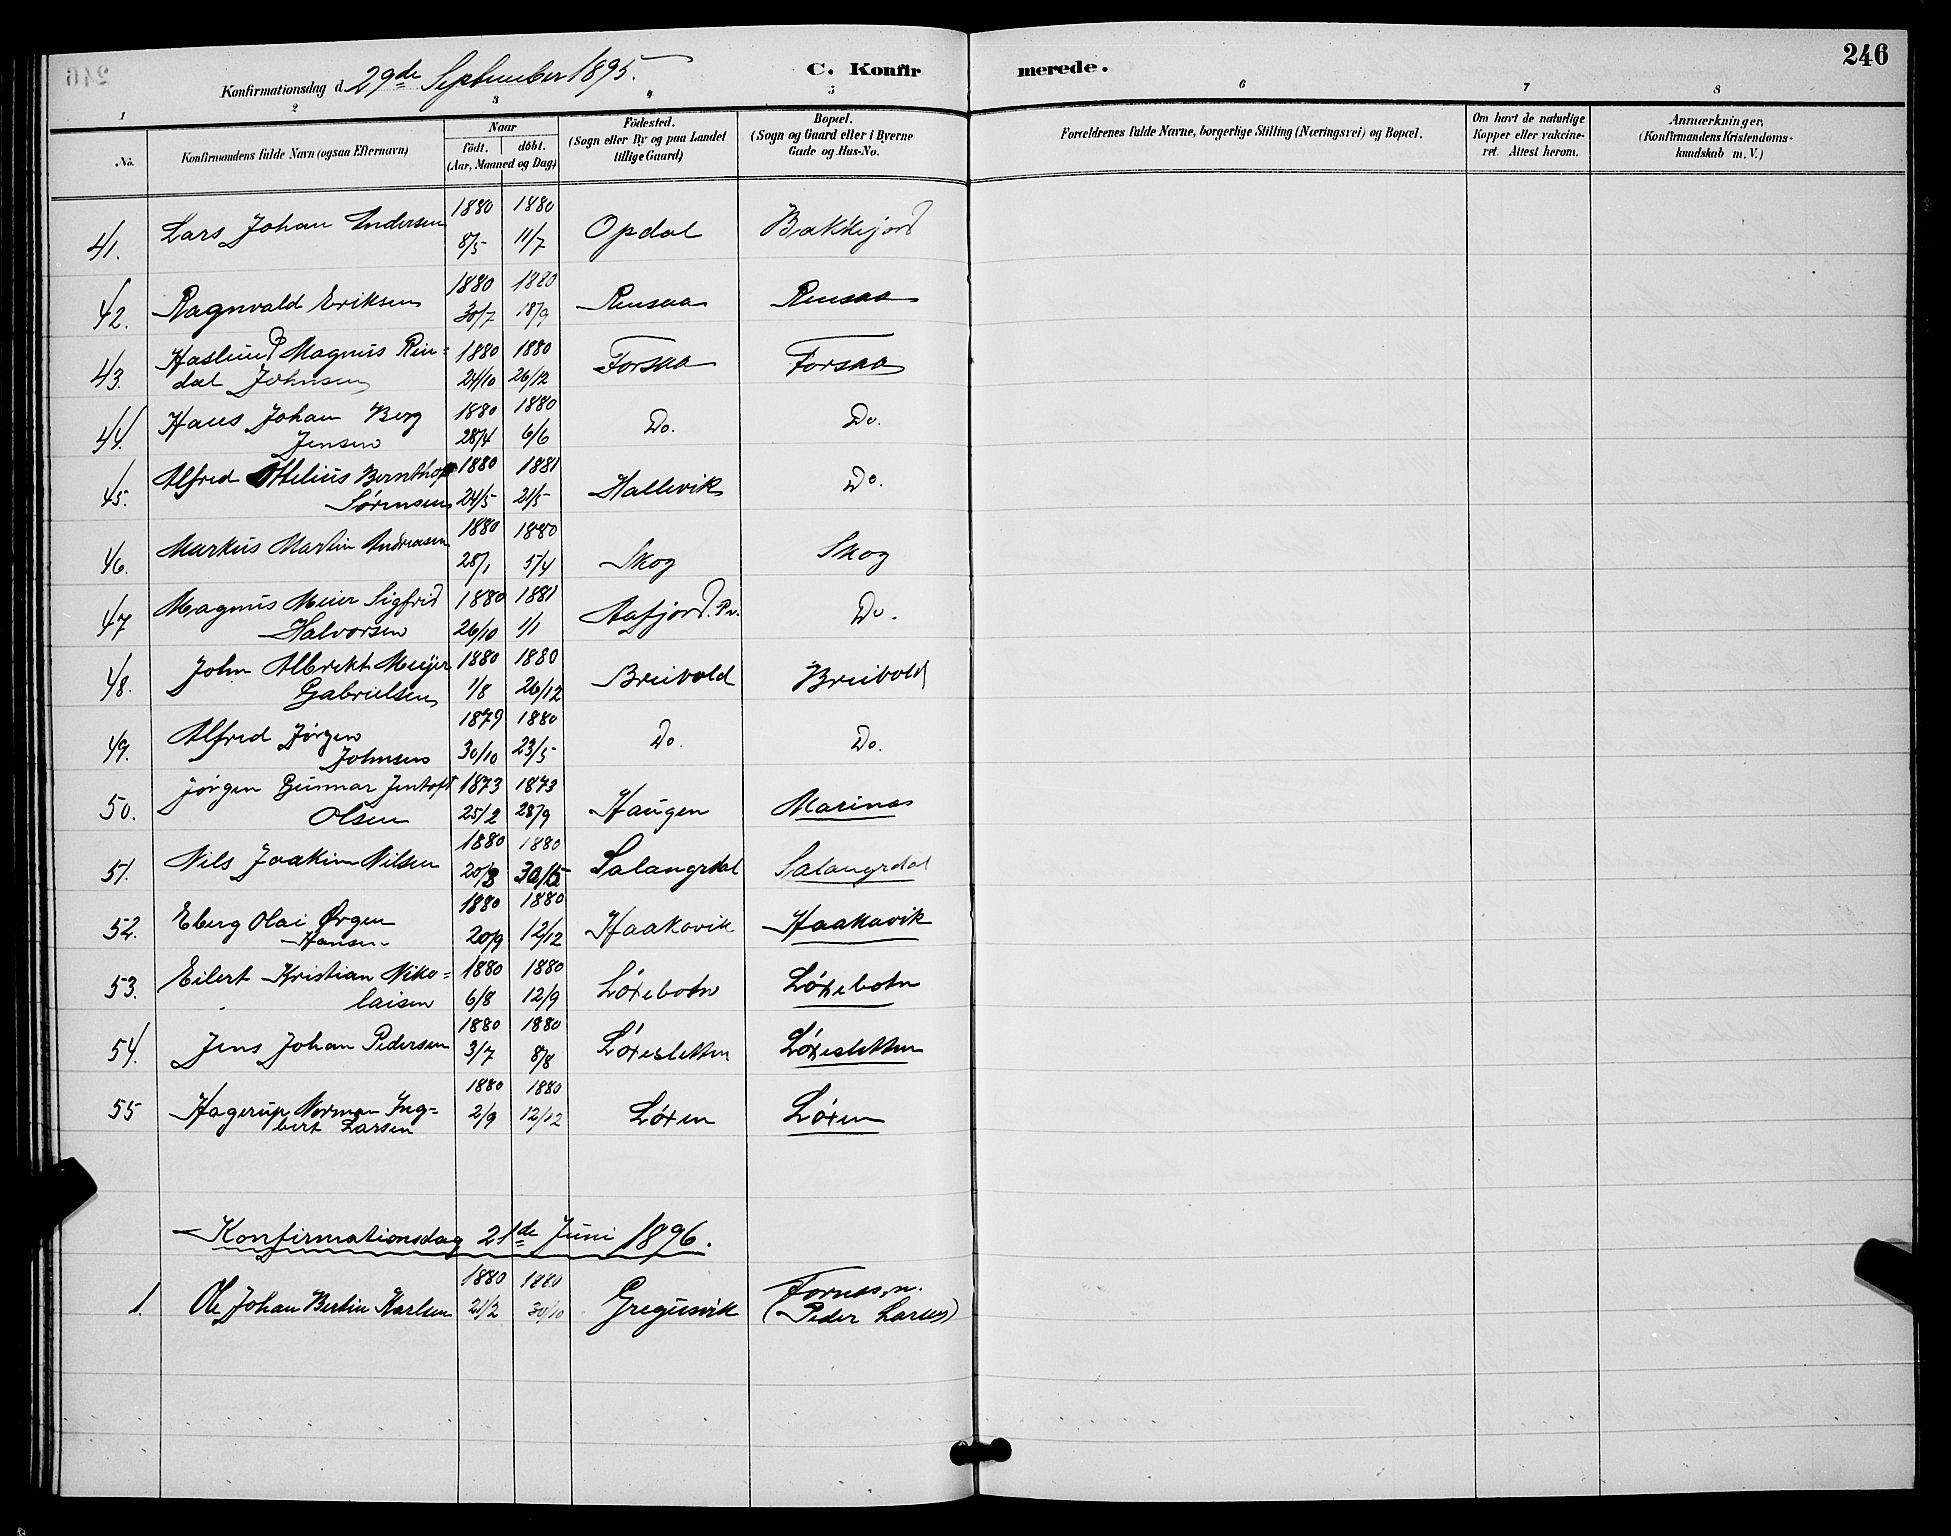 246
Konfirmationsdag d. 29de September 1895.
C. Konfirmerede.
1 2 3 4 5 6 7 8
No.
Konfirmandens fulde Navn (ogsaa Efternavn)
Naar
födt. döbt.
(Aar, Maaned og Dag)
Födested.
(Sogn eller By og paa Landet
tillige Gaard)
Bopæl.
(Sogn og Gaard eller i Byerne
Gade og Hus-No.
Forældrenes fulde Navne, borgerlige Stilling (Næringsvei) og Bopæl.
Om havt de naturlige
Kopper eller vakcine-
ret. Attest herom.
Anmærkninger,
(Konfirmandens Kristendoms-
kundskab m. V.)
41. Lars Johan Andersen 1880 8/5 1880 11/7 Opdal Bakkejord
42. Ragnvald Eriksen 1880 30/7 1880 18/9 Rensaa Rensaa
43. Haslund Magnus Rin-
dal Johnsen 1880 24/10 1880 26/12 Forsaa Forsaa
44. Hans Johan Berg
Jensen 1880 28/4 1880 6/6 Do. Do.
45. Alfred Ottelius Bernthof
Sørensen 1880 24/5 1881 21/5 Hallevik Do.
46. Markus Martin Andreasen 1880 28/1 1880 5/4 Skog Skog
47 Magnus Meier Sigfrid
Halvorsen 1880 26/10 1881 1/1 Aafjord. Pr. Do.
48. John Albrekt Meyer
Gabrielsen 1880 1/8 1880 26/12 Breivold Breivold
49. Alfred Jørgen
Johnsen 1879 30/10 1880 23/5 Do. Do.
50. Jørgen Gunnar Jentoft
Olsen 1873 25/2 1873 28/9 Haugen Marines
51. Nils Joakim Nilsen 1880 20/3 1880 30/5 Salangsdal Salangsdal
52. Eberg Olai Ørgen
Hansen 1880 20/9 1880 12/12 Haakavik Haakavik
53. Eilert Kristian Niko-
laisen 1880 6/8 1880 12/9 Löxebotn Löxebotn
54. Jens Johan Pedersen 1880 3/7 1880 8/8 Löxesletten Löxesletten
55 Hagerup Norman Ing-
bert Larsen 1880 2/9 1880 12/12 Löxen Löxen
Konfirmationsdag 21de Juni 1896.
1. Ole Johan Bertin Karlsen 1880 21/2 1880 30/10 Gregusvik Fornes, n.
(Peder Larsen)